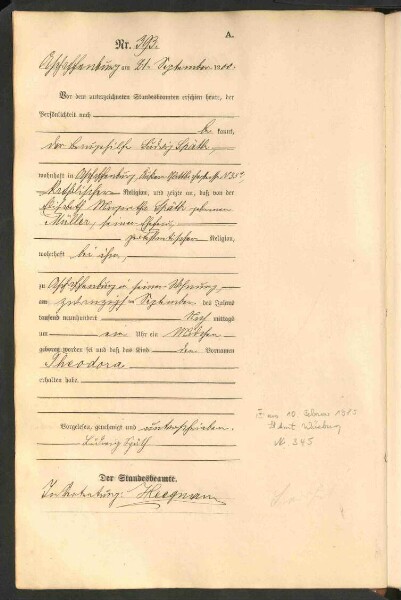 A.
Nr. 393.
Aschaffenburg am 21. September 19
Vor dem unterzeichneten Standesbeamten erschien heute, der
Persönlichkeit nach
be kannt,
der Ludwig Späth,
wohnhaft in Aschaffenburg,
katholischer Religion, und zeigte an, daß von der
Elisabeth Margaretha Späth geborenen
Müller, seiner Ehefrau,
protestantischer Religion,
wohnhaft bei ihm,
zu Aschaffenburg in seiner Wohnung
am zwanzigsten September des Jahres
tausend neunhundert Nach mittags
um Uhr ein Mädchen
geboren worden sei und daß das Kind den Vornamen
Theodora
erhalten habe.
Vorgelesen, genehmigt und unterschrieben.
Ludwig Späth
Der Standesbeamte.
In Vertretung:
am 10. Februar
St.Amt Würzburg
Nr. 345